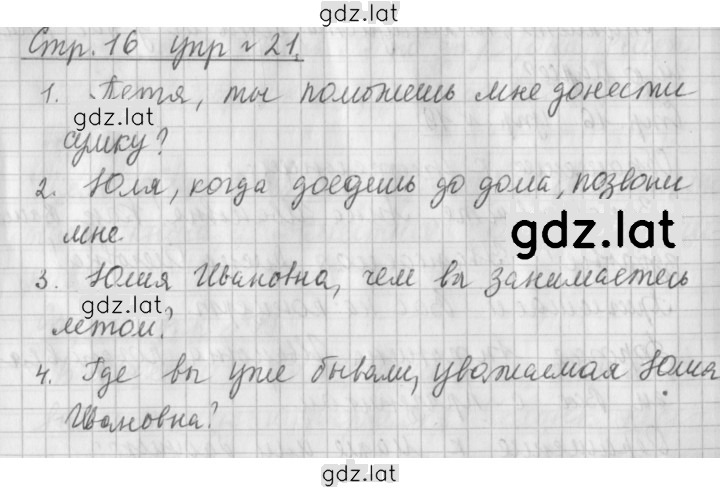 gdz.lat
Стр. 16 упр № 21.
1. Петя, ты поможешь мне донести
gdz.lat
сумку?
2. Юля, когда доедешь до дома, позвони
gdz.lat
мне.
3. Юлия Ивановна, чем вы занимаетесь
gdz.lat
летом?
4. Где вы уже бывали, уважаемая Юлия
Ивановна?
gdz.lat